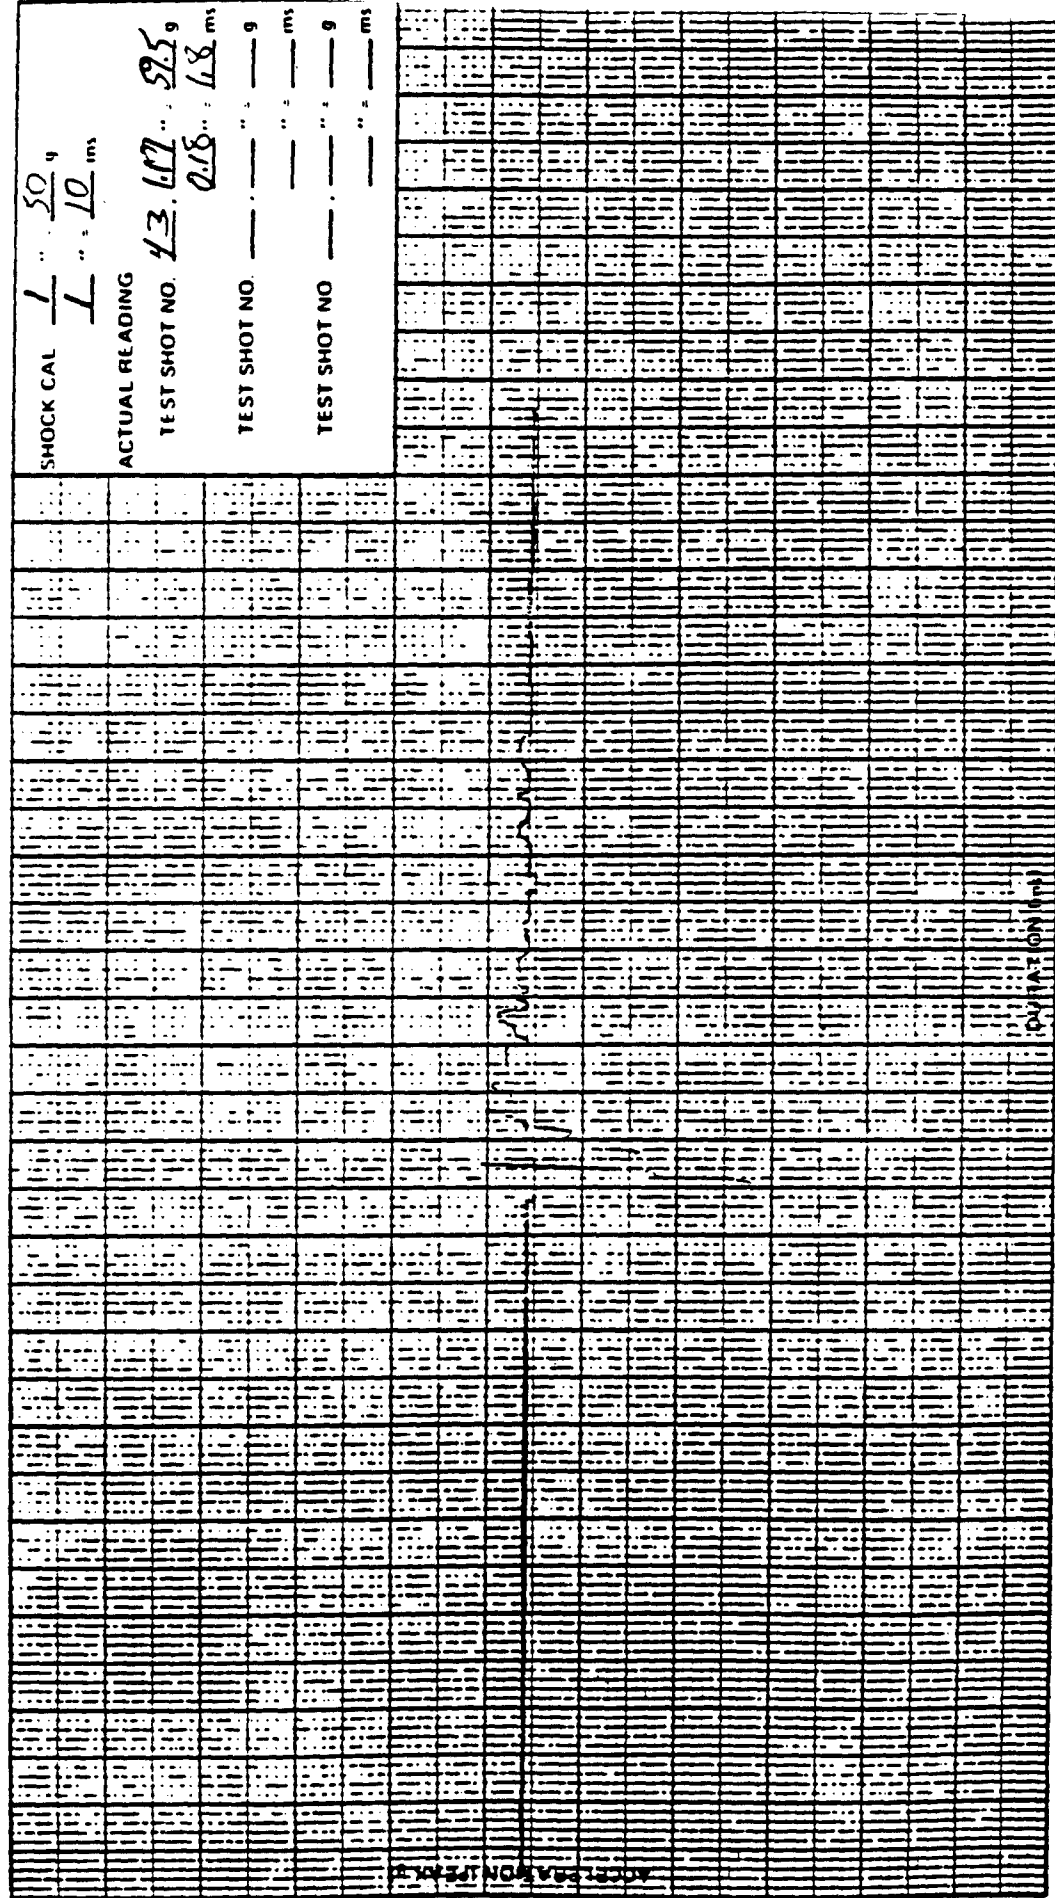 SHOCK CAL 1 " . 50 g
1 " = 10 ms
ACTUAL READING
TEST SHOT NO. 43 . 1.19 " . 59.5 g
0.18 " . 1.8 ms
TEST SHOT NO. ____ . ____ " = ____ g
____ " = ____ ms
TEST SHOT NO ____ . ____ " = ____ g
____ " = ____ ms
ACCELERATION (PEAK g)
DURATION (ms)